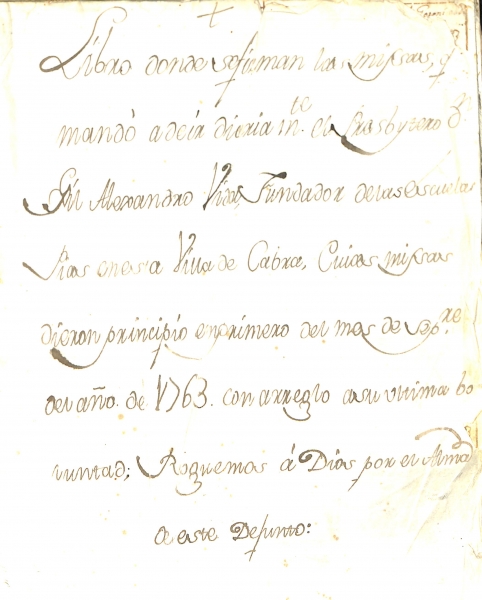 Libro donde se firman las missas, q.
mandò a decir diaria mte. el Presbytero Dn.
Gil Alexandro Vida, Fundador de las escuelas
Pias en esta Villa de Cabra, Cuias missas
dieron principio en primero del mes de Sepre.
del año de 1763. con arreglo a su vltima bo
luntad; Roguemos á Dios por el Alma
de este Defunto: